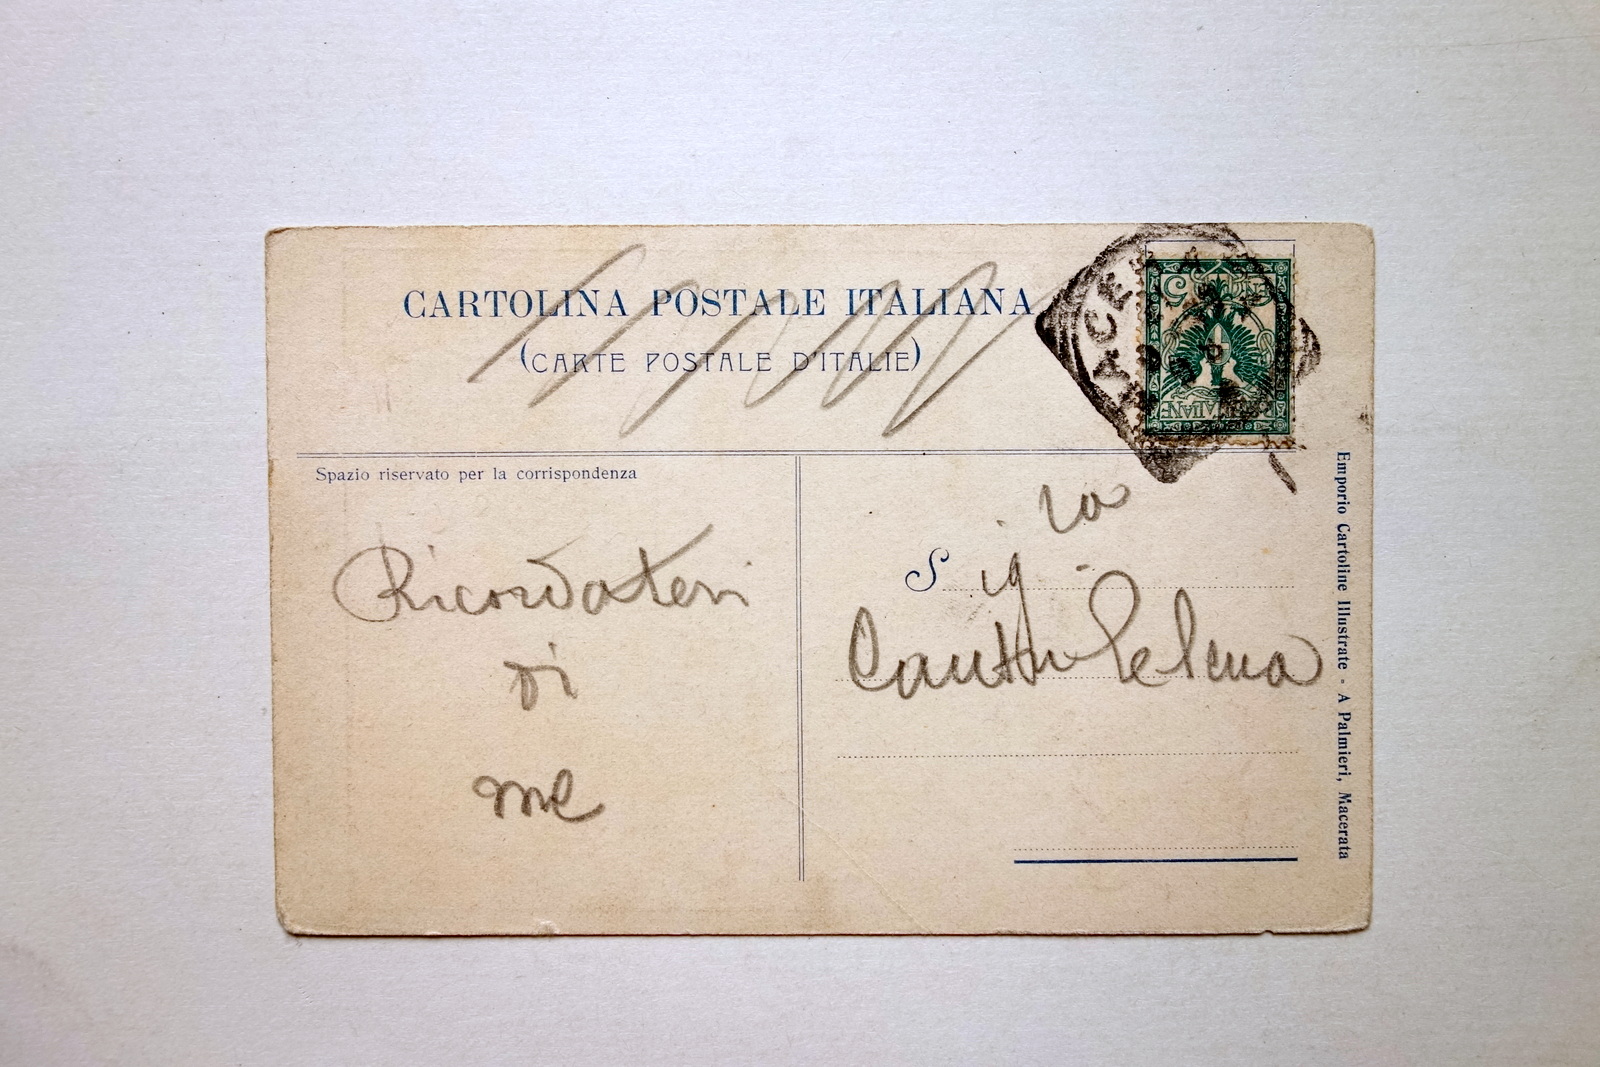 CARTOLINA POSTALE ITALIANA
(CARTE POSTALE D'ITALIE)
MACERATA
5
Spazio riservato per la corrispondenza
Ricordatevi
di
me
Sig.ra
Elena
Emporio Cartoline Illustrate - A Palmieri, Macerata